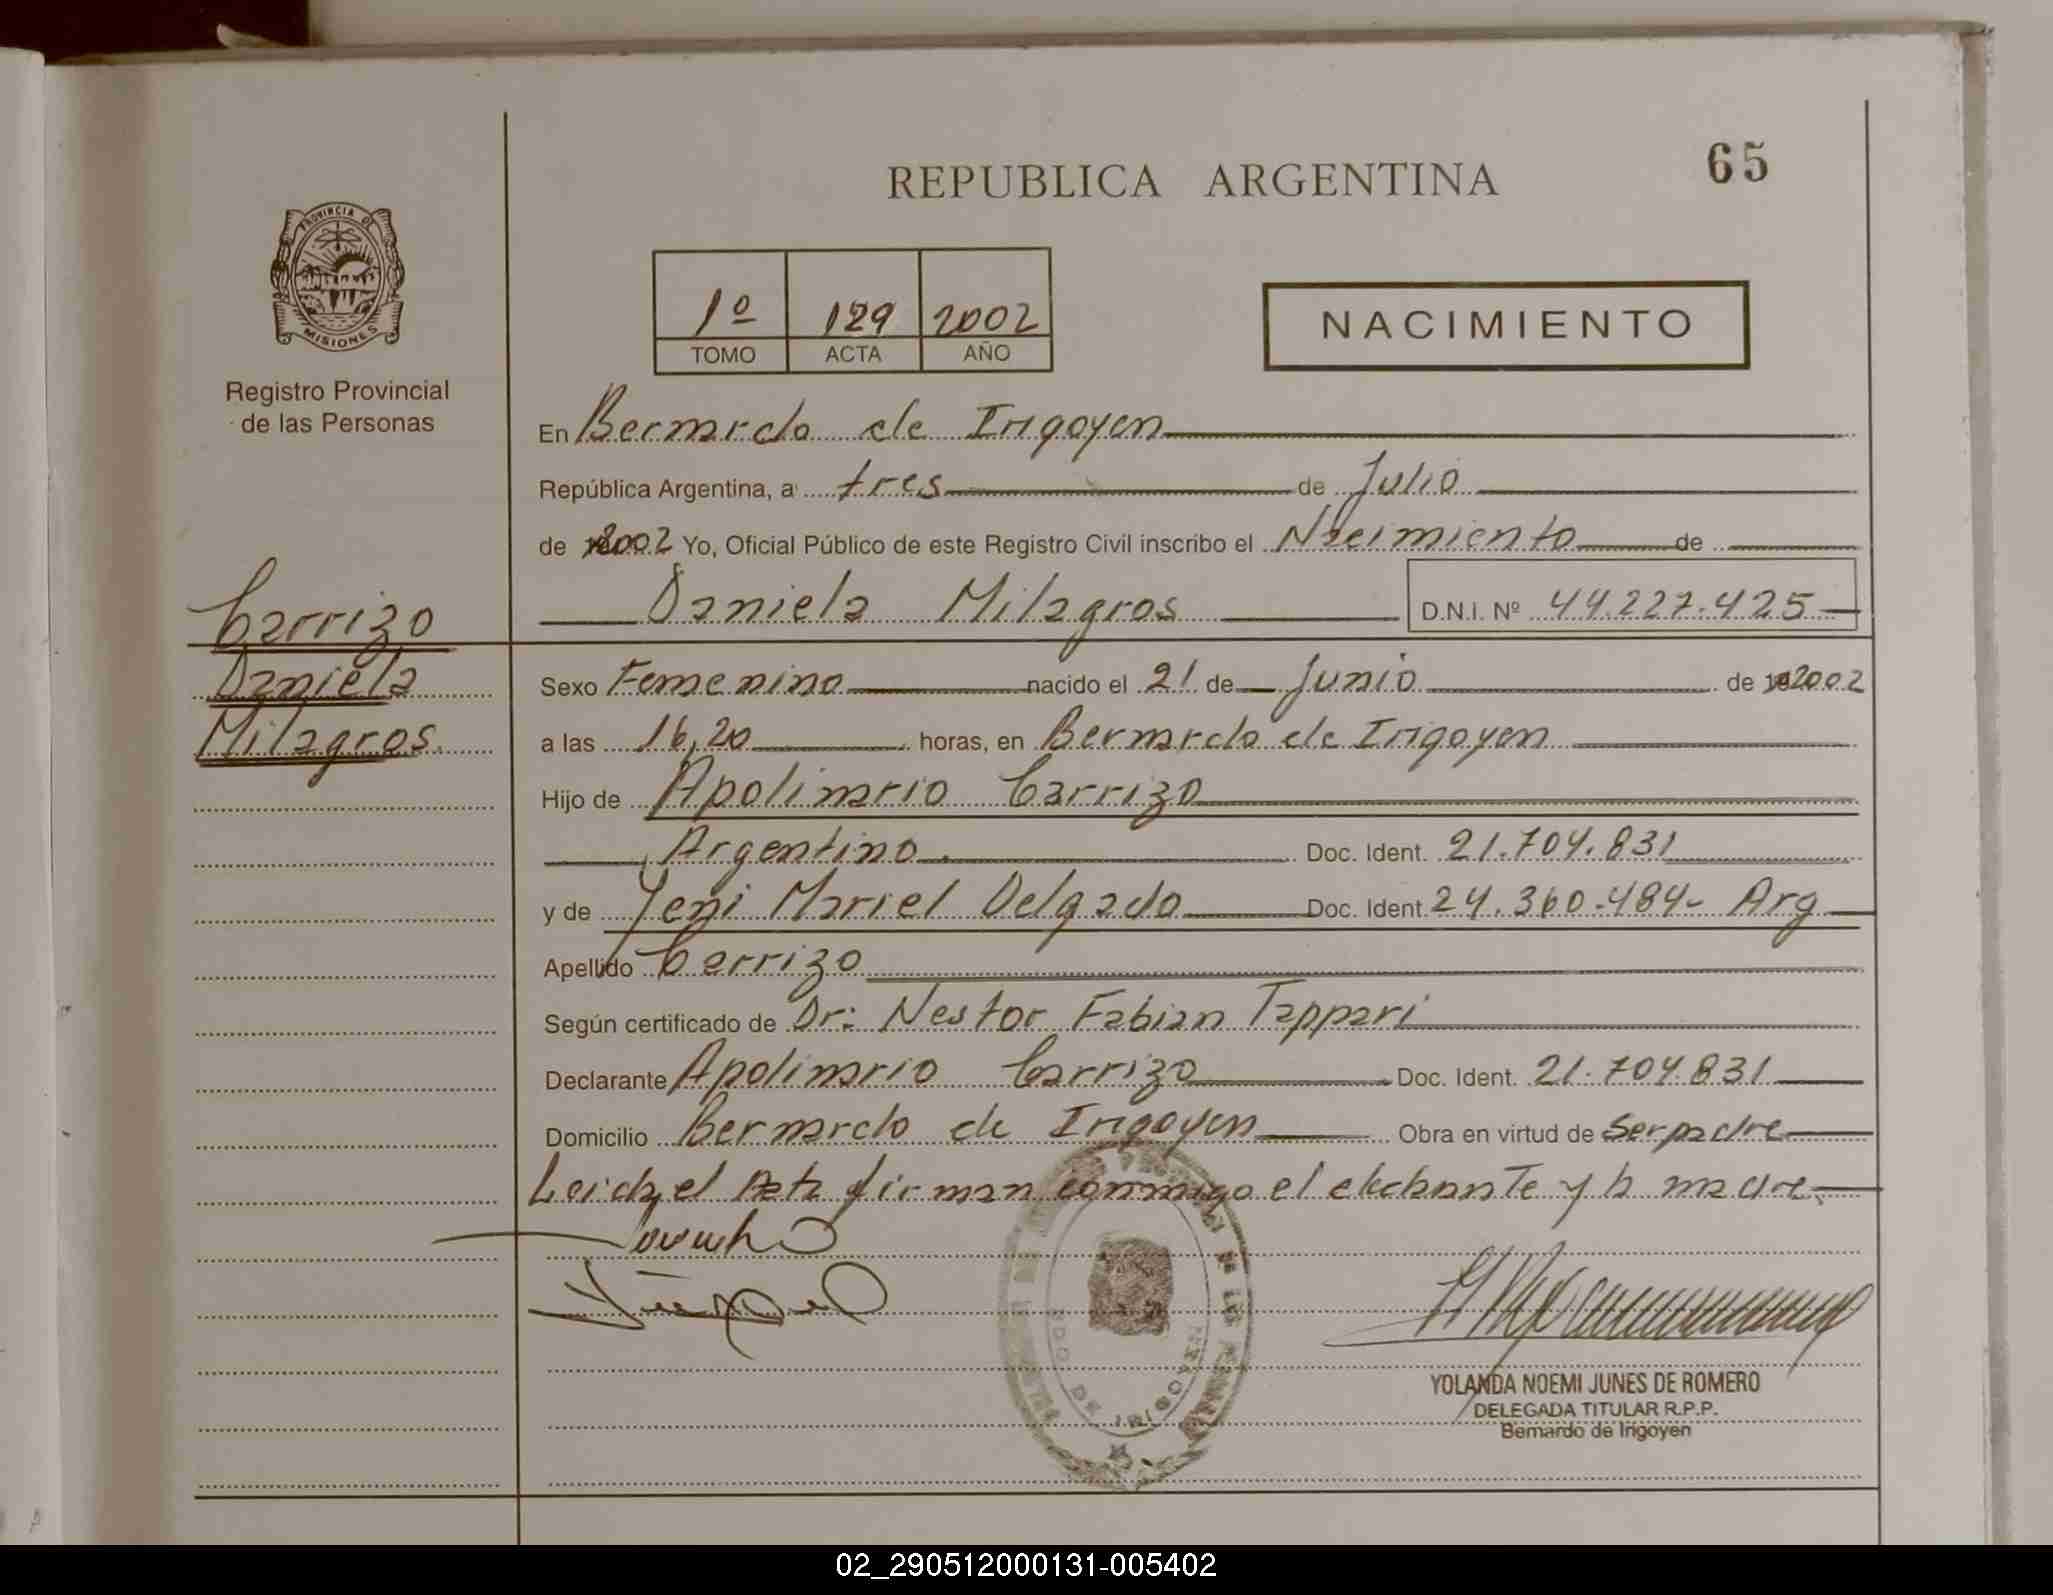 65
REPUBLICA ARGENTINA
PROVINCIA DE
MISIONES
Registro Provincial
de las Personas
1º 129 2002
TOMO ACTA AÑO
NACIMIENTO
En Bernardo de Irigoyen
República Argentina, a tres de Julio
de 2002 Yo, Oficial Público de este Registro Civil inscribo el Nacimiento de
Daniela Milagros D.N.I. Nº 44.227.425
Carrizo
Daniela
Milagros
Sexo Femenino nacido el 21 de Junio de 2002
a las 16,20 horas, en Bernardo de Irigoyen
Hijo de Apolinario Carrizo
Argentino Doc. Ident. 21.704.831
y de Yeni Mariel Delgado Doc. Ident. 24.360.484- Arg
Apellido Carrizo
Según certificado de Dr: Nestor Fabian Tappari
Declarante Apolinario Carrizo Doc. Ident. 21.704.831
Domicilio Bernardo de Irigoyen Obra en virtud de ser padre
Leida el Acta firman conmigo el y la madre.
YOLANDA NOEMI JUNES DE ROMERO
DELEGADA TITULAR R.P.P.
Bernardo de Irigoyen
02_290512000131-005402